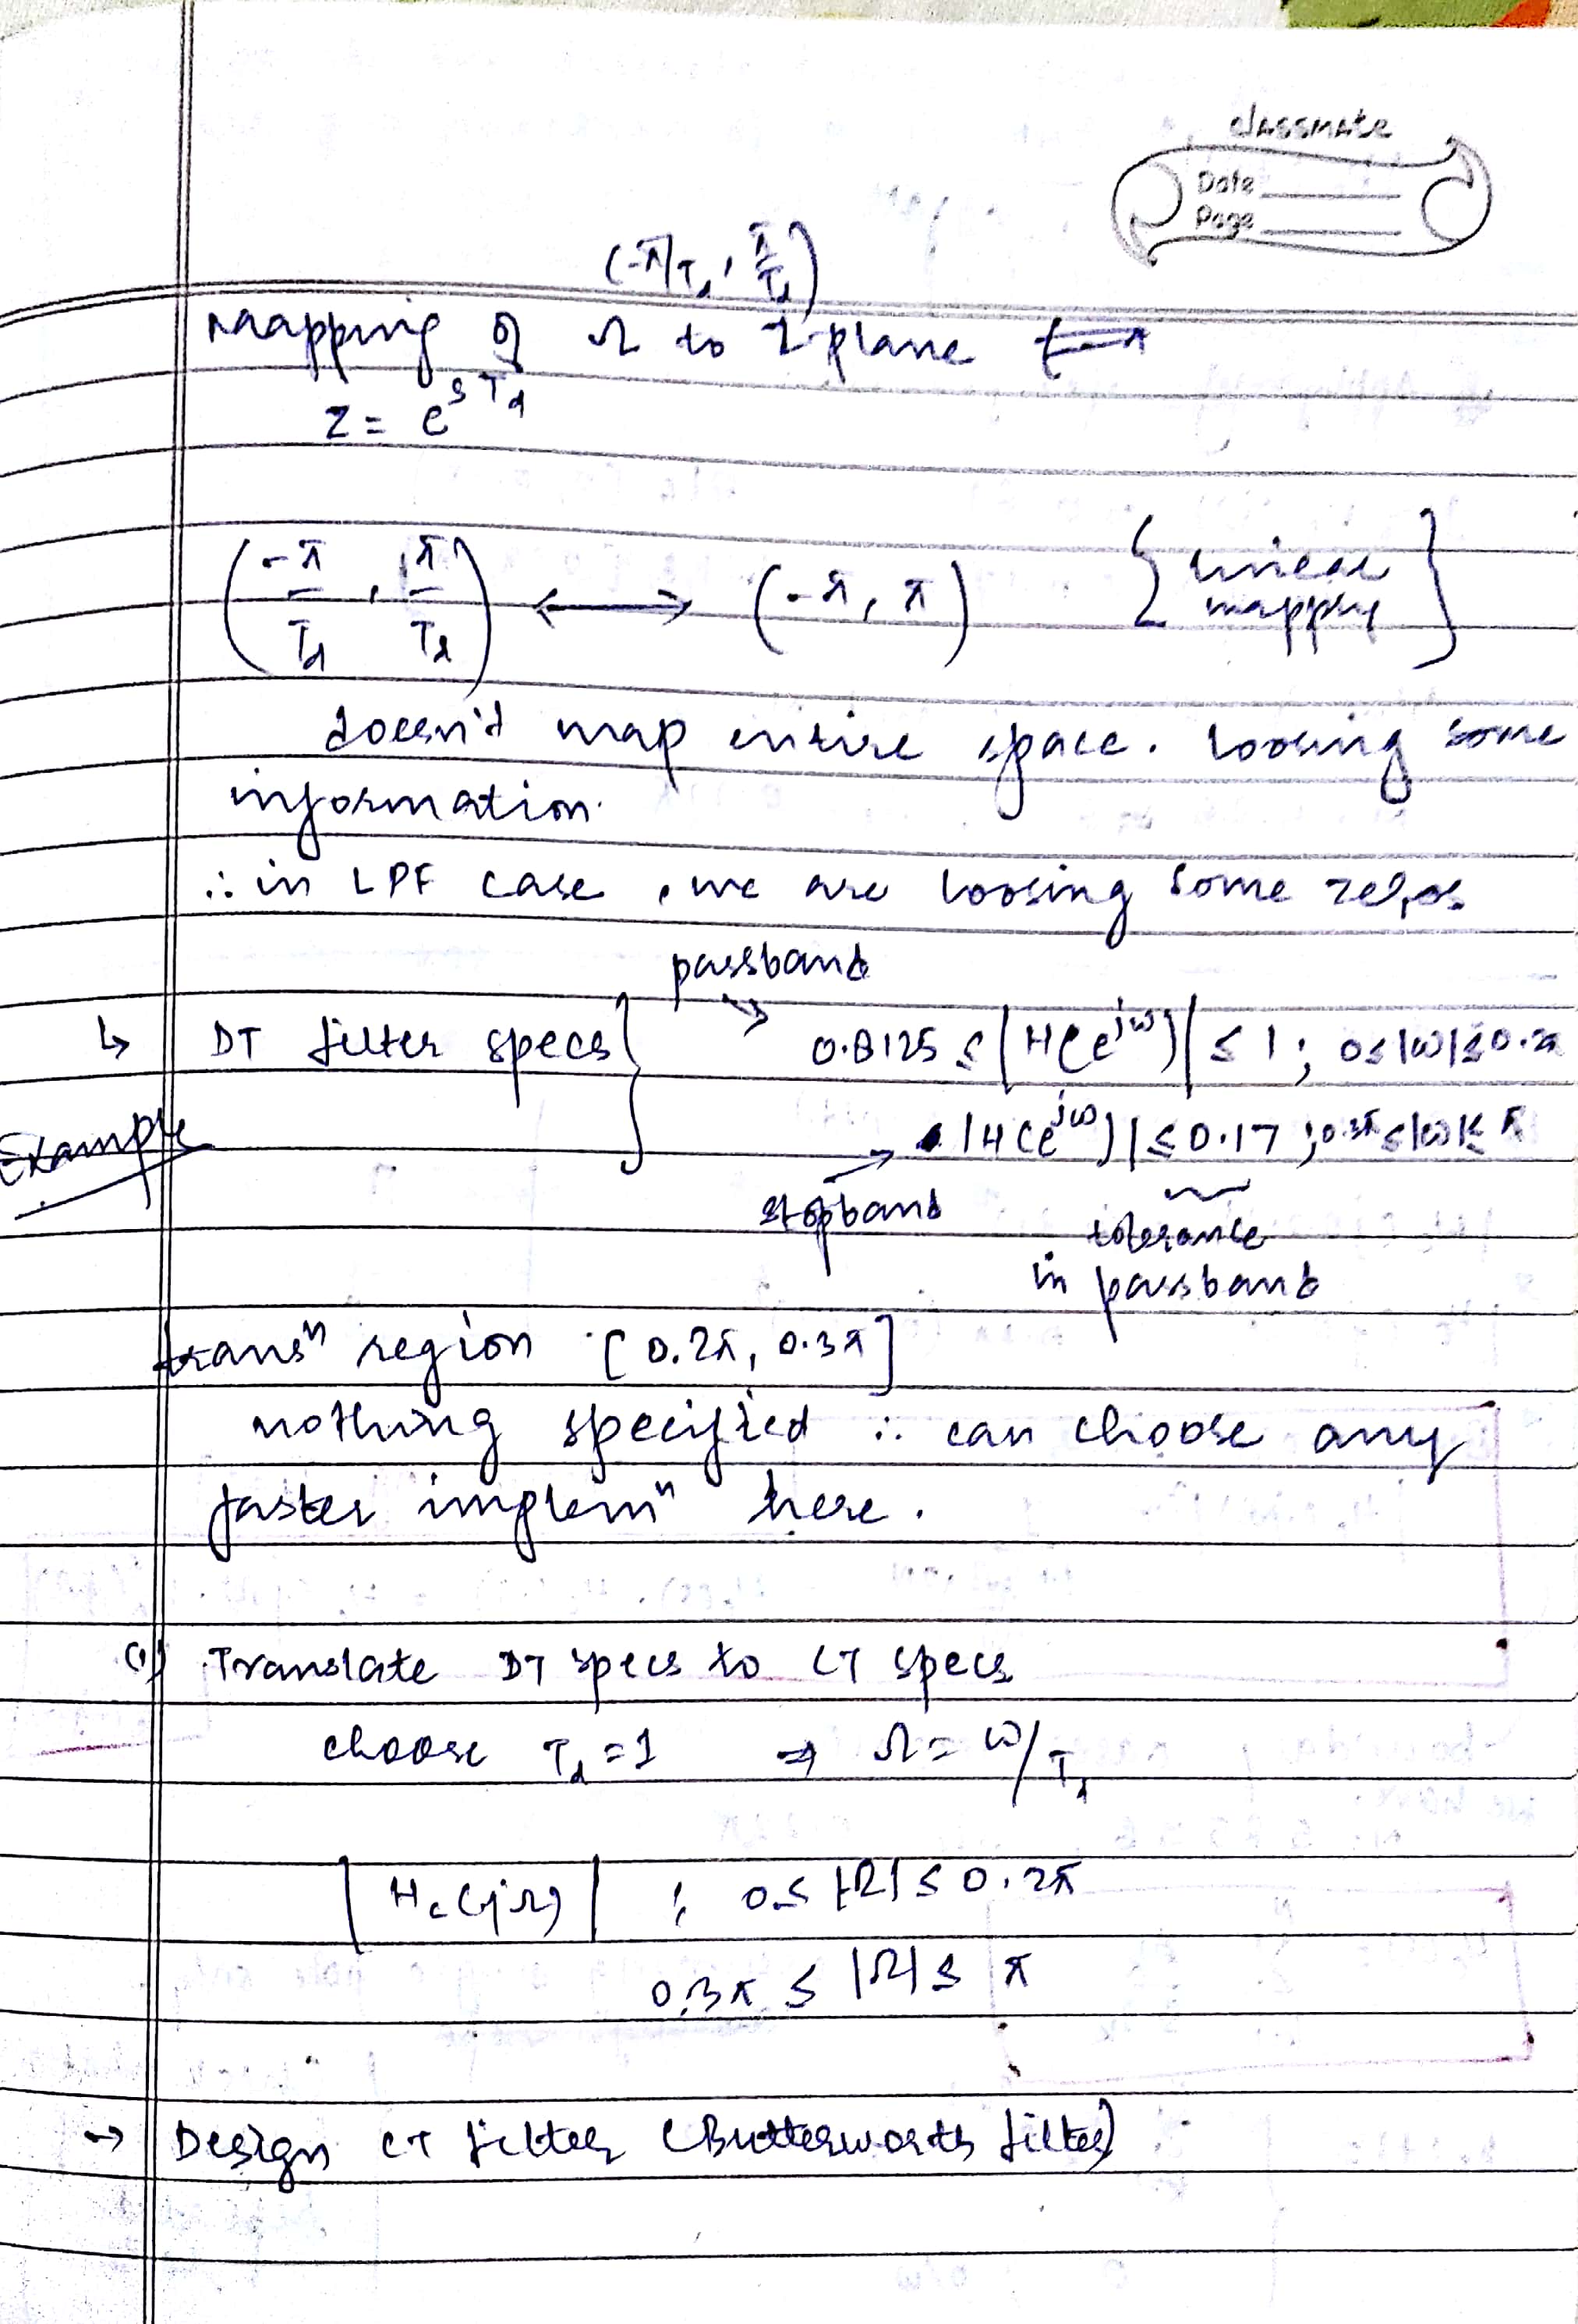 classmate
Date
Page
(-π/Td, π/Td)
Mapping of Ω to Z plane
z = e^{sTd}
(-π/Td, π/Td) ⟷ (-π, π) {linear mapping}
doesn't map entire space. loosing some
information.
∴ in LPF case, we are loosing some
passband
↳ DT filter specs } → 0.8125 ≤ |H(e^{jω})| ≤ 1 ; 0≤|ω|≤0.2π
Example
|H(e^{jω})| ≤ 0.17 ; 0.3π≤|ω|≤ π
stopband → tolerance
in passband
transⁿ region [0.2π, 0.3π]
nothing specified ∴ can choose any
faster implemⁿ here.
(1) Translate DT specs to CT specs
choose Td = 1 ⇒ Ω = ω/Td
|Hc(jΩ)| ; 0 ≤ |Ω| ≤ 0.2π
0.3π ≤ |Ω| ≤ π
→ Design CT filter (Butterworth filter)